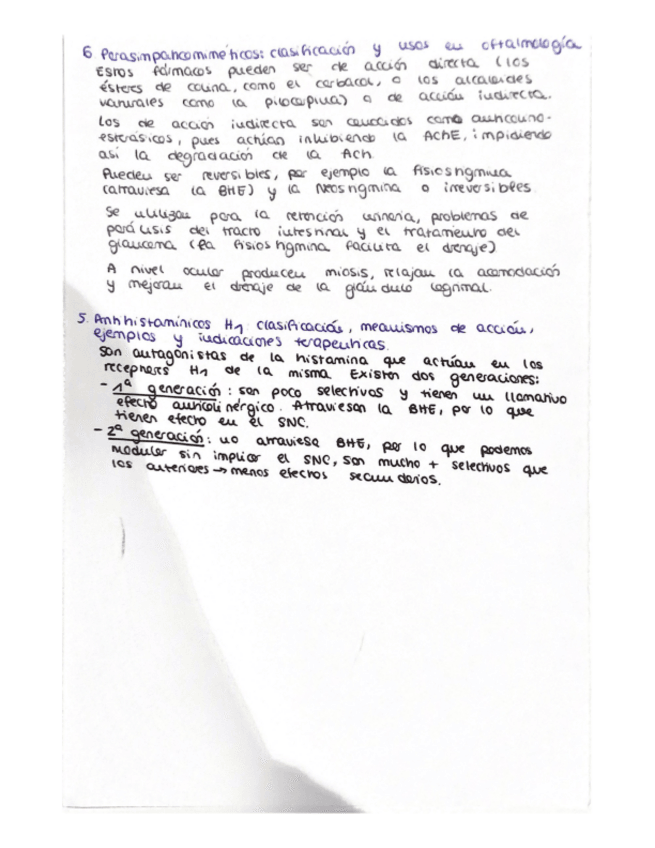 6 Parasimpaticomiméticos: clasificación y usos en oftalmología
Estos fármacos pueden ser de acción directa (los
ésteres de colina, como el carbacol, o los alcaloides
naturales como la pilocarpina) o de acción indirecta.
Los de acción indirecta son conocidos como anticolino-
esterásicos, pues actúan inhibiendo la AChE, impidiendo
así la degradación de la ACh
Pueden ser reversibles, por ejemplo la fisiostigmina
(atraviesa la BHE) y la Neostigmina o irreversibles
Se utilizan para la retención urinaria, problemas de
parálisis del tracto intestinal y el tratamiento del
glaucoma (la fisiostigmina facilita el drenaje)
A nivel ocular producen miosis, relajan la acomodación
y mejoran el drenaje de la glándula lagrimal.
5. Antihistamínicos H1 clasificación, mecanismos de acción,
ejemplos y indicaciones terapeuticas.
Son antagonistas de la histamina que actúan en los
receptores H1 de la misma. Existen dos generaciones:
- 1ª generación: son poco selectivos y tienen un llamativo
efecto anticolinérgico. Atraviesan la BHE, por lo que
tienen efecto en el SNC.
- 2ª generación: no atraviesa BHE, por lo que podemos
modular sin implicar el SNC, son mucho + selectivos que
los anteriores → menos efectos secundarios.